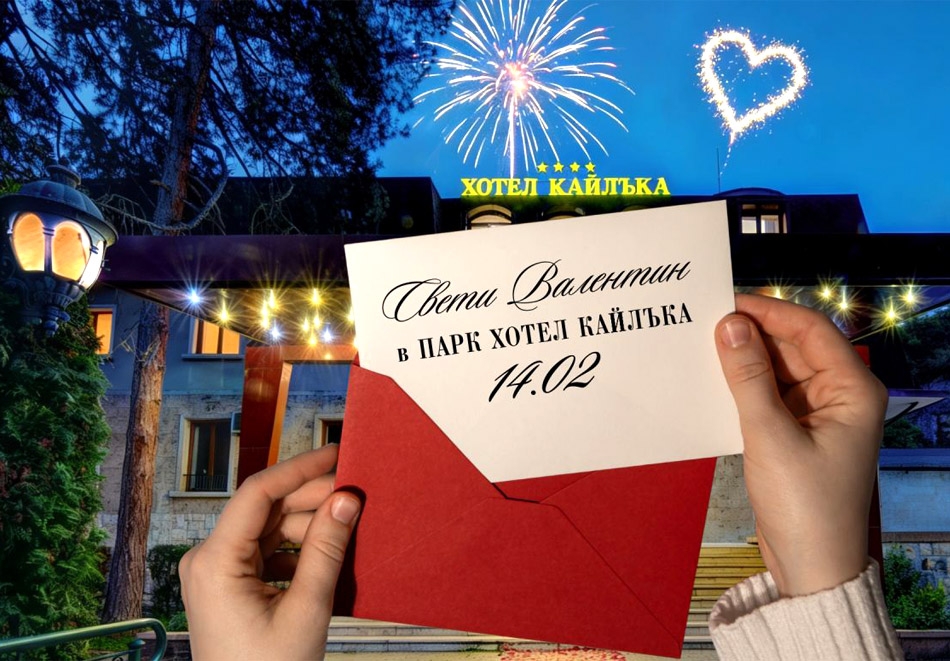 ХОТЕЛ КАЙЛЪКА
Свети Валентин
в ПАРК ХОТЕЛ КАЙЛЪКА
14.02